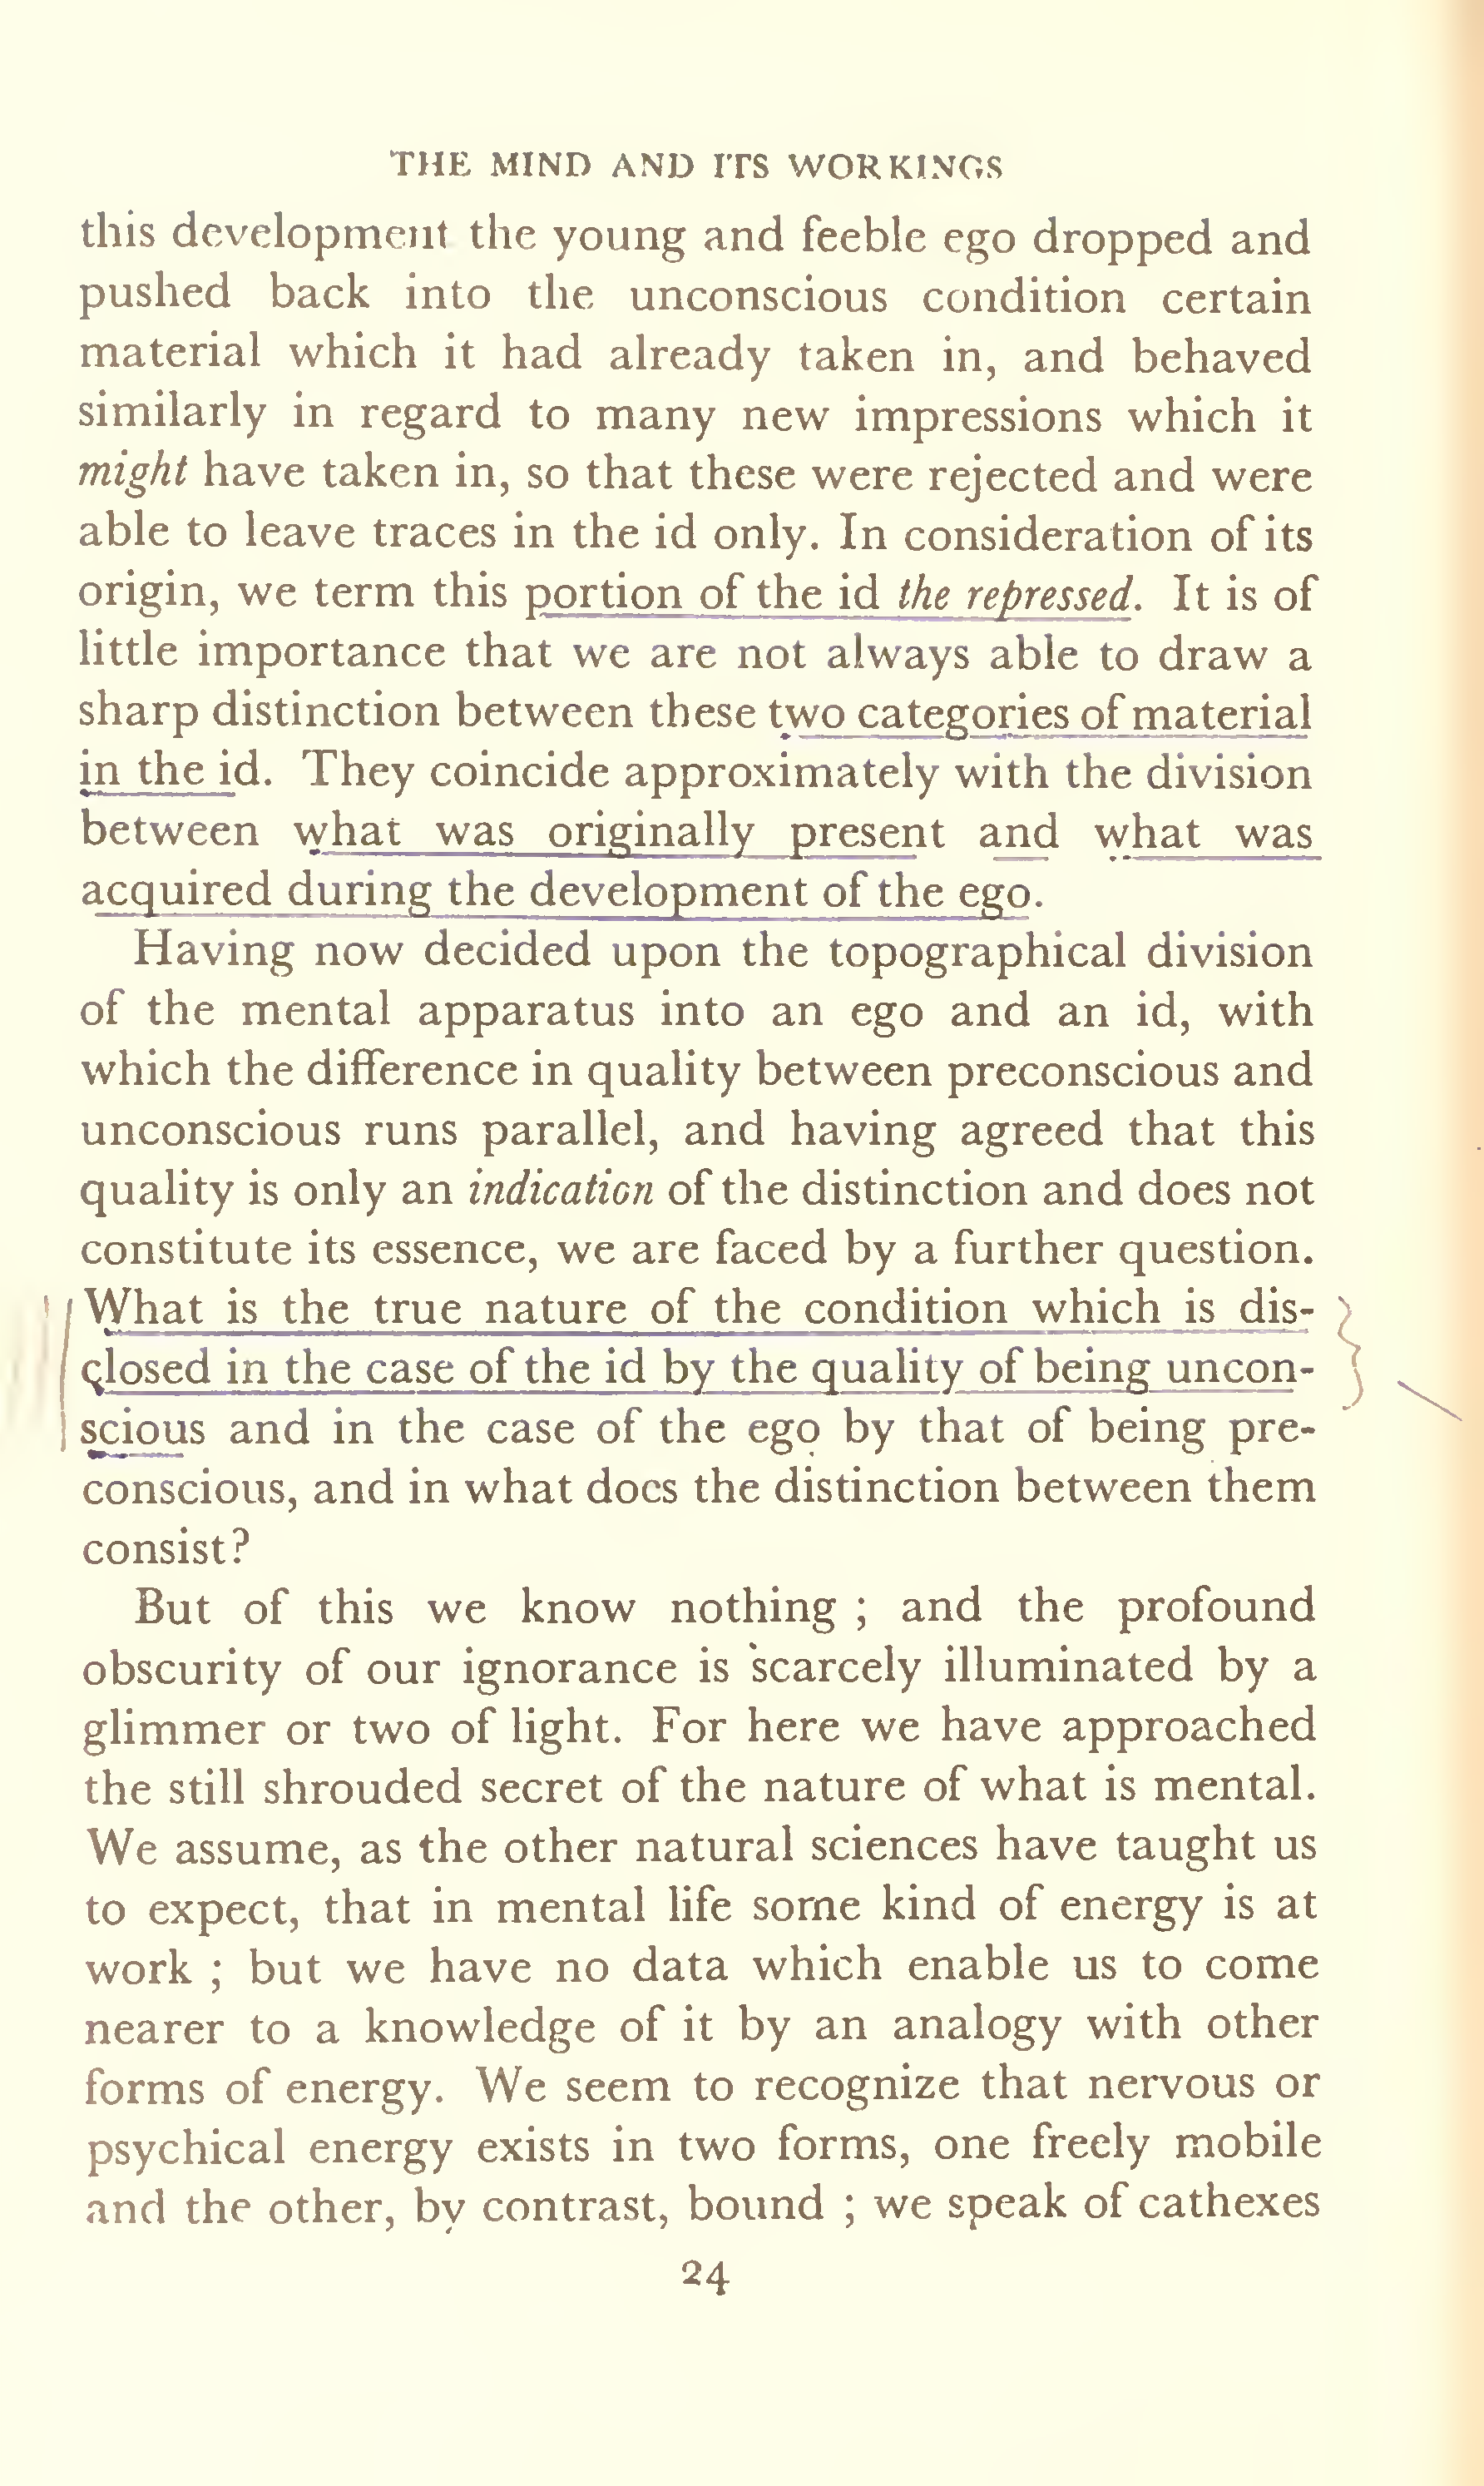 THE MIND AND ITS WORKINGS
this development the young and feeble ego dropped and
pushed back into the unconscious condition certain
material which it had already taken in, and behaved
similarly in regard to many new impressions which it
might have taken in, so that these were rejected and were
able to leave traces in the id only. In consideration of its
origin, we term this portion of the id the repressed. It is of
little importance that we are not always able to draw a
sharp distinction between these two categories of material
in the id. They coincide approximately with the division
between what was originally present and what was
acquired during the development of the ego.
Having now decided upon the topographical division
of the mental apparatus into an ego and an id, with
which the difference in quality between preconscious and
unconscious runs parallel, and having agreed that this
quality is only an indication of the distinction and does not
constitute its essence, we are faced by a further question.
What is the true nature of the condition which is dis-
closed in the case of the id by the quality of being uncon-
scious and in the case of the ego by that of being pre-
conscious, and in what does the distinction between them
consist?
But of this we know nothing ; and the profound
obscurity of our ignorance is scarcely illuminated by a
glimmer or two of light. For here we have approached
the still shrouded secret of the nature of what is mental.
We assume, as the other natural sciences have taught us
to expect, that in mental life some kind of energy is at
work ; but we have no data which enable us to come
nearer to a knowledge of it by an analogy with other
forms of energy. We seem to recognize that nervous or
psychical energy exists in two forms, one freely mobile
and the other, by contrast, bound ; we speak of cathexes
24